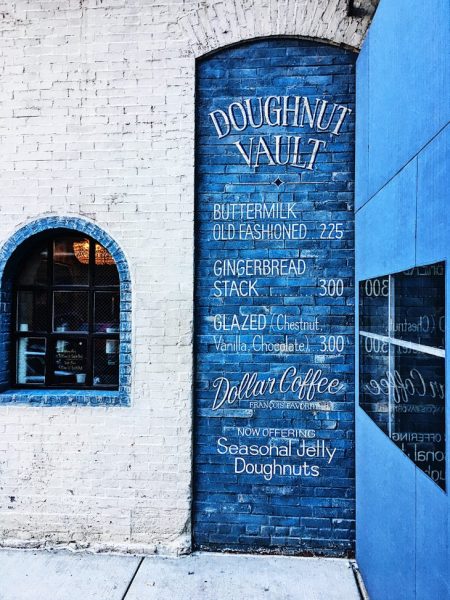 DOUGHNUT
VAULT
BUTTERMILK
OLD FASHIONED 225
GINGERBREAD
STACK 300
GLAZED (Chestnut,
Vanilla, Chocolate) 300
Dollar Coffee
FRANÇOIS' FAVORITE
NOW OFFERING
Seasonal Jelly
Doughnuts